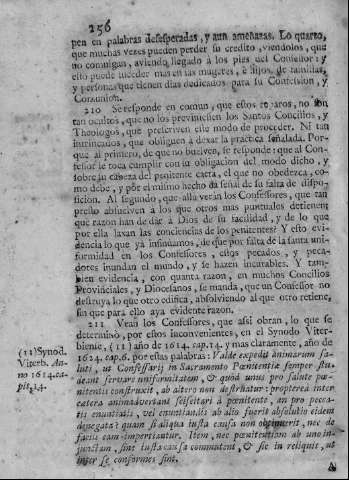 256
pen en palabras desesperadas, y aun amenazas. Lo quarto,
que muchas vezes pueden perder su credito, viendolos, que
no comulgan, aviendo llegado à los pies del Confessor: y
esto puede suceder mas en las mugeres, è hijos de familias,
y personas que tienen dias dedicados para su Confession, y
Comunion.
210 Se responde en comun, que estos reparos, no son
tan ocultos, que no los previniessen los Santos Concilios, y
Theologos, que prescriven este modo de proceder. Ni tan
intrincados, que obliguen à dexar la practica señalada. Por-
que al primero, de que no buelven, se responde: que al Con-
fessor le toca cumplir con su obligacion del modo dicho, y
sobre su cabeza del penitente caerà, el que no obedezca, co-
mo debe, y por el mismo hecho dà señal de su falta de dispo-
sicion. Al segundo, que allà veràn los Confessores, que tan
presto absuelven à los que otros mas puntuales detienen
què razon han de dàr à Dios de su facilidad, y de lo que
por ella laxan las conciencias de los penitentes? Y esto evi-
dencia lo que yà insinuamos, de que por falta de la santa uni-
formidad en los Confessores, estos pecados, y peca-
dores inundan el mundo, y se hazen incurables. Y tam-
bien evidencia, con quanta razon, en muchos Concilios
Provinciales, y Diocesanos, se manda, que un Confessor no
destruya lo que otro edifica, absolviendo al que otro retiene,
sin que para ello aya evidente razon.
211 Vean los Confessores, que assi obran, lo que se
determinò, por estos inconvenientes, en el Synodo Viter-
biense, (11) año de 1614. cap. 14. y mas claramente, año de
1624. cap. 6. por estas palabras: Valde expedit animarum sa-
luti, ut Confessarij in Sacramento Pœnitentiæ semper stu-
deant servare uniformitatem, & quod unus pro salute pœ-
nitentis construxit, ab altero non destruatur: propterea inter
cætera animadvertant sciscitari à pœnitente, an pro pecca-
tis enuntiatis, vel enuntiandis ab alio fuerit absolutio eidem
denegata: quam si aliqua iusta causa non obtinuerit, nec de
facili eam impertiantur. Item, nec pœnitentiam ab uno in-
junctam, sine iusta causa commutent, & sic in reliquis, ut
inter se conformes sint.
(11) Synod.
Viterb. An-
no 1614. ca-
pit. 14.